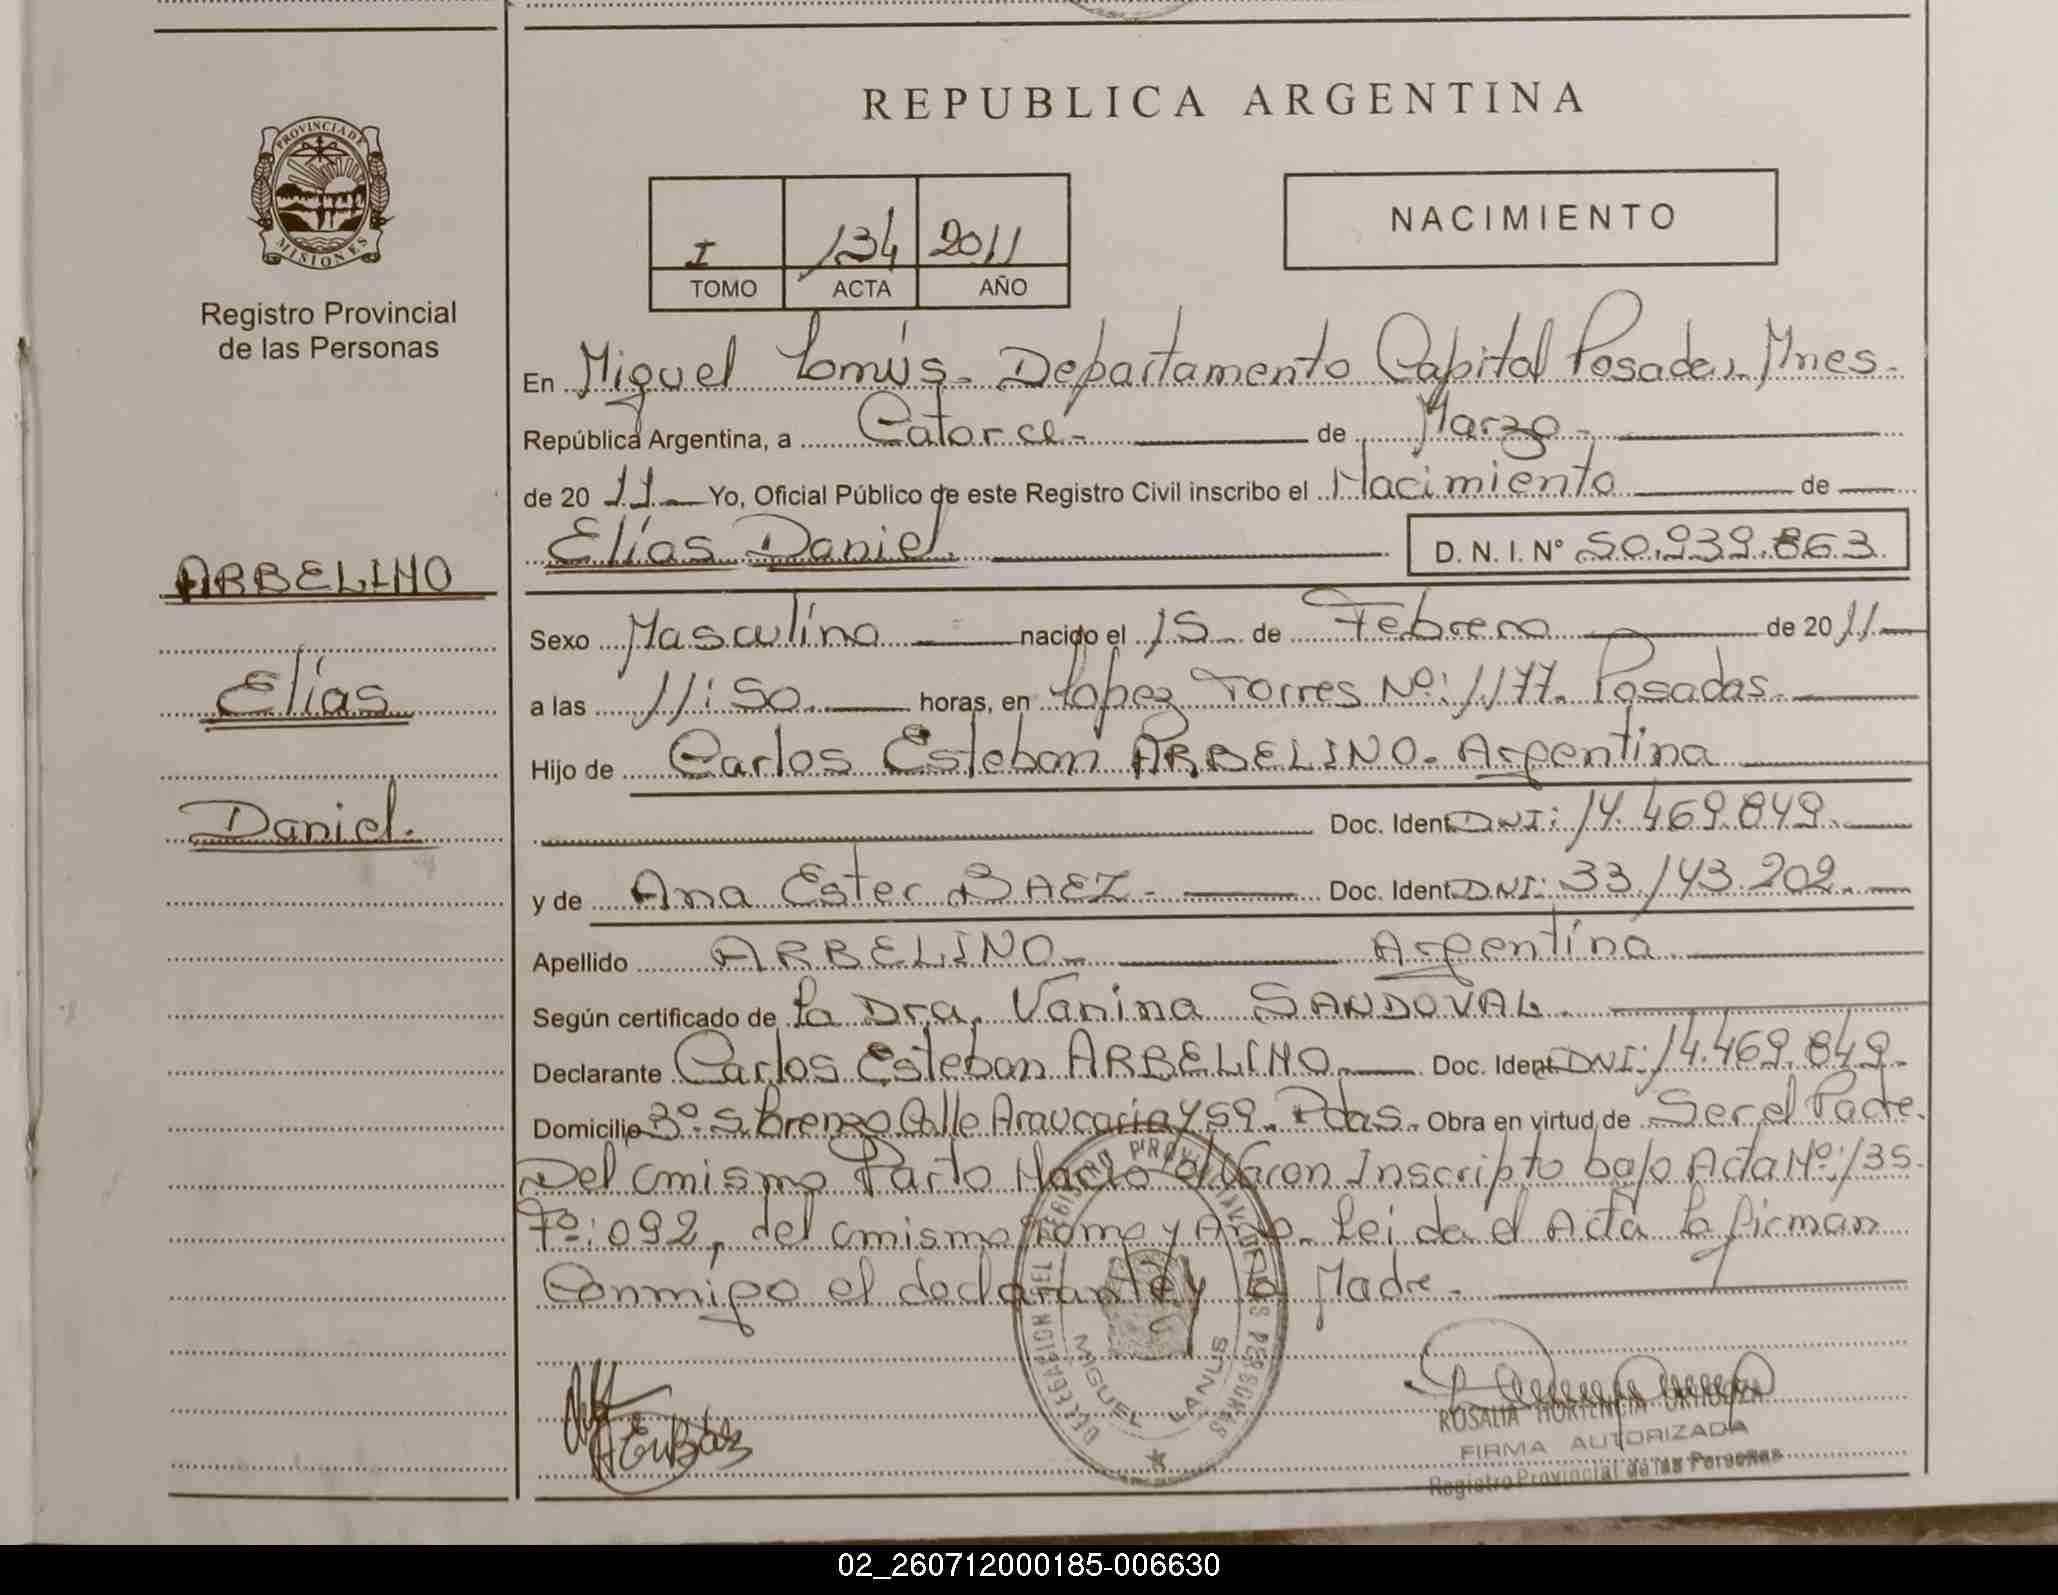 REPUBLICA ARGENTINA
PROVINCIA DE
MISIONES
Registro Provincial
de las Personas
I 134 2011
TOMO ACTA AÑO
NACIMIENTO
En Miguel Lanús. Departamento Capital Posadas. Mnes.
República Argentina, a Catorce- de Marzo-
de 20 11 Yo, Oficial Público de este Registro Civil inscribo el Nacimiento de
Elías Daniel. D. N. I. N° 50.939.863
ARBELINO
Elías
Daniel.
Sexo Masculino nacido el 15 de Febrero de 20 11
a las 11:50. horas, en López Torres Nº: 1177. Posadas.
Hijo de Carlos Esteban ARBELINO. Argentina
Doc. Ident. DNI: 14.469.849.
y de Ana Ester BAEZ- Doc. Ident. DNI: 33.143.202.
Apellido ARBELINO- Argentina
Según certificado de la Dra. Vanina SANDOVAL.
Declarante Carlos Esteban ARBELINO. Doc. Ident. DNI: 14.469.849.
Domicilio Bº S. Lorenzo Calle Araucaria 459. Pdas. Obra en virtud de Ser el Padre.
Del mismo Parto Nació Varon Inscripto bajo Acta Nº: 135.
Fº: 092, del mismo Tomo y Año. Leida el Acta la firman
Conmigo el declarante y la Madre.
DELEGACION DEL REGISTRO PROVINCIAL DE LAS PERSONAS
MIGUEL LANUS
ROSALIA HORTENCIA
FIRMA AUTORIZADA
Registro Provincial de las Personas
02_260712000185-006630